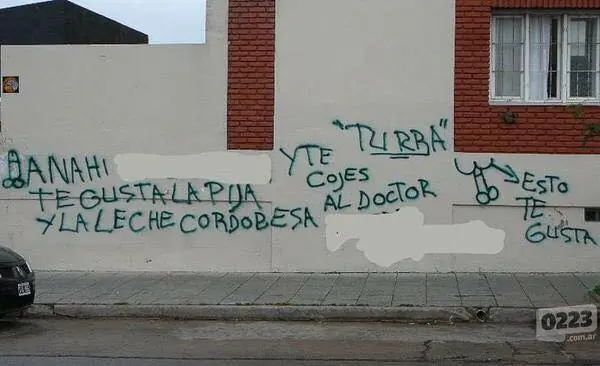 ANAHI
TE GUSTA LA PIJA
Y LA LECHE CORDOBESA
Y TE
COJES
AL DOCTOR
"TURRA"
ESTO
TE
GUSTA
0223
.com.ar